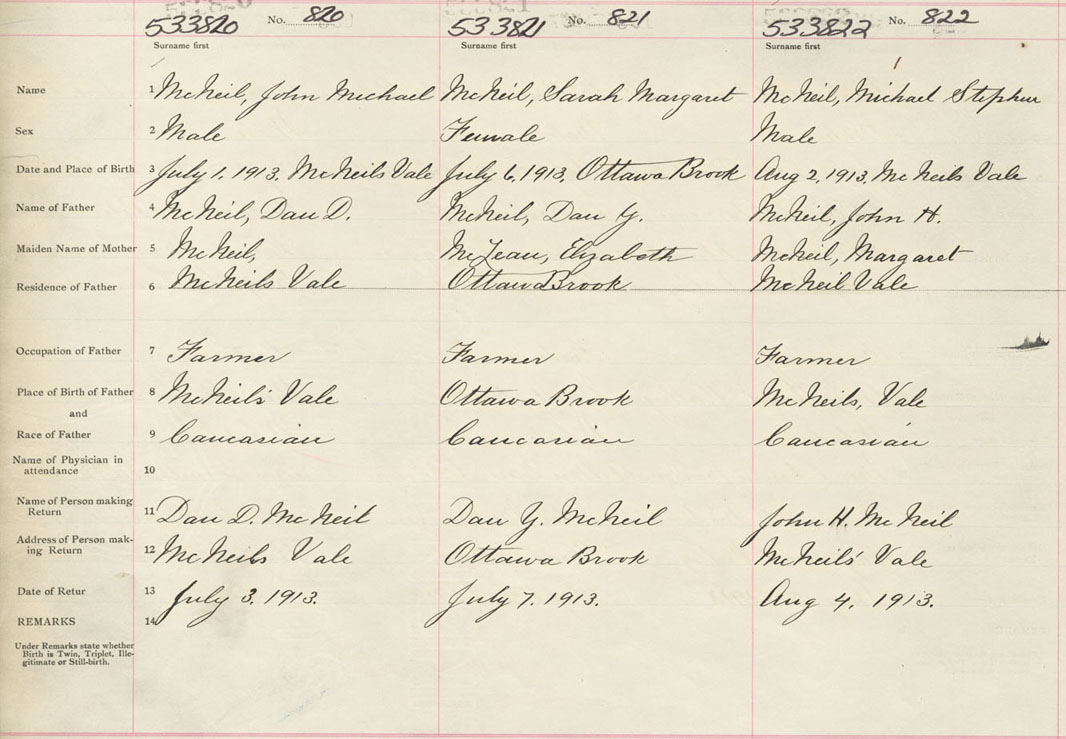 533820 No. 820 533821 No. 821 533822 No. 822
Surname first Surname first Surname first
Name 1 McNeil, John Michael McNeil, Sarah Margaret McNeil, Michael Stephen
Sex 2 Male Female Male
Date and Place of Birth 3 July 1, 1913, McNeils Vale July 6, 1913, Ottawa Brook Aug 2, 1913, McNeils Vale
Name of Father 4 McNeil, Dan D. McNeil, Dan Y. McNeil, John H.
Maiden Name of Mother 5 McNeil, McLean, Elizabeth McNeil, Margaret
Residence of Father 6 McNeils Vale Ottawa Brook McNeil Vale
Occupation of Father 7 Farmer Farmer Farmer
Place of Birth of Father 8 McNeil's Vale Ottawa Brook McNeils, Vale
and
Race of Father 9 Caucasian Caucasian Caucasian
Name of Physician in
attendance 10
Name of Person making
Return 11 Dan D. McNeil Dan Y. McNeil John H. McNeil
Address of Person mak-
ing Return 12 McNeils Vale Ottawa Brook McNeils' Vale
Date of Retur 13 July 3. 1913. July 7. 1913. Aug 4. 1913.
REMARKS 14
Under Remarks state whether
Birth is Twin, Triplet, Ille-
gitimate or Still-birth.